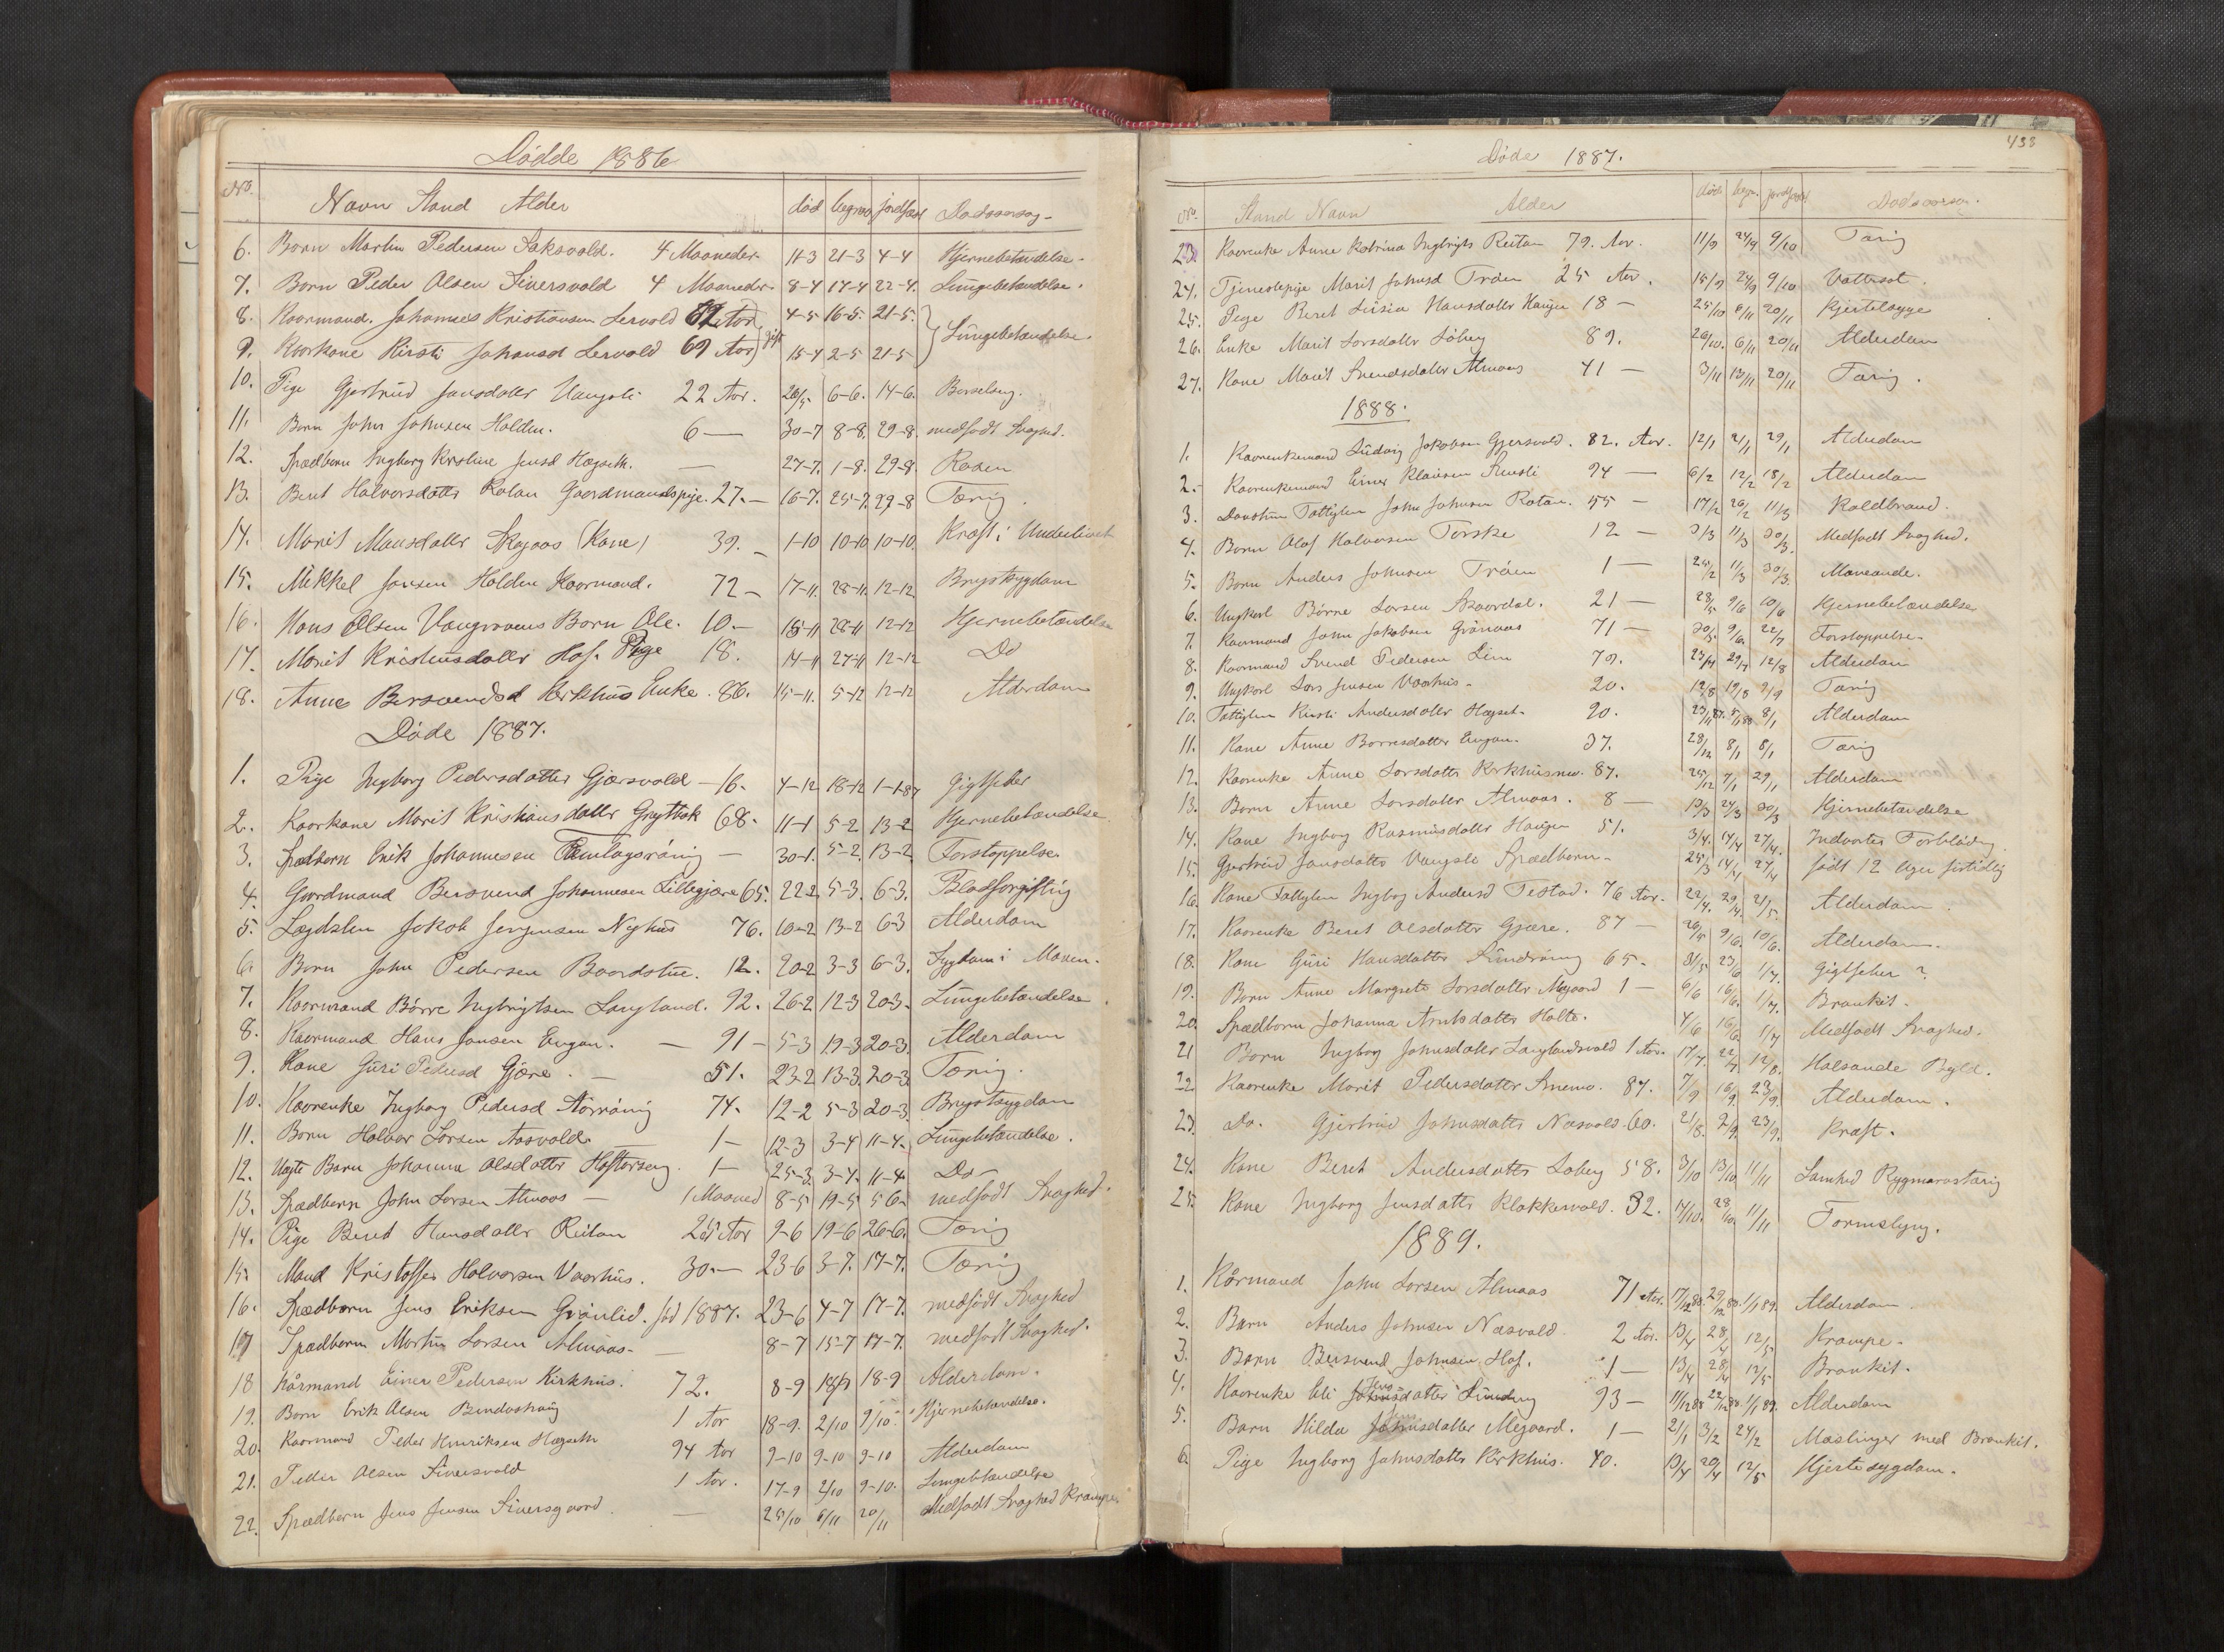 Dödde 1886
No. Navn Stand Alder död begrav jordfæst Dødsaarsag
6. Barn Martin Pedersen Saksvold. 4 Maaneder 11-3 21-3 4-4 Hjernebetændelse.
7. Barn Peder Olsen Siversvold 4 Maaneder 8-4 17-4 22-4. Lungebetændelse.
8. Kaarmand. Johannes Kristiansen Lervold Aar 4-5 16-5. 21-5.
9. Kaarkone Kirsti Johansd Lervold 69 Aar 15-4 2-5 21-5 Lungebetændelse.
10. Pige Gjertrud Jansdatter Vangsli 22 Aar. 26/5 6-6. 14-6. Barselseng.
11. Barn John Johnsen Holden. 6 — 30-7 8-8. 29-8. medfødt Svaghed.
12. Spædbarn Ingborg Kristine Jensd Hægseth. — 27-7. 1-8. 29-8. Rosen
13. Beret Halvorsdatter Rotan Gaardmandspige. 27. — 16-7. 25-7. 29-8 Tæring.
14. Marit Mansdatter Skajaas (Kone) 39. — 1-10 10-10 10-10. Kræft i Underlivet
15. Mikkel Jansen Holden Kaarmand. 72 — 17-11. 28-11. 12-12 Brystsygdom
16. Hans Olsen Vangravens Barn Ole. 10. — 15-11 28-11 12-12 Hjernebetændelse
17. Marit Kristensdatter Hof. Pige 18. 14-11 27-11 12-12 Do
18. Anne Bersvendsd Kirkhus Enke. 86. 15-11. 5-12 12-12 Alderdom
Döde 1887.
1. Pige Ingborg Pedersdatter Gjærsvold — 16. 4-12 18-12 1-1-87 Gigtfeber
2. Kaarkone Marit Kristiansdatter Gryttbak 68. 11-1 5-2 13-2 Hjernebetændelse
3. Spædbarn Erik Johannesen — 30-1. 5-2. 13-2 Forstoppelse
4. Gaardmand Bersvend Johannesen Lillegjære 65. 22-2 5-3. 6-3. Blodforgiftnig
5. Lægdslem Jakob Jørgensen Nyhus 76. 10-2 13-2 6-3 Alderdom
6. Barn John Pedersen Baardstue. 12. 20-2 3-3 6-3. Sygdom i Maven.
7. Kaarmand Börre Ingbrigtsen Langland. 92. 26-2 12-3 20-3. Lungebetændelse
8. Kaarmand Hans Jansen Engan. — 91 — 5-3 19-3 20-3. Alderdom
9. Kone Guri Pedersd Gjære. — 51. 23-2 13-3. 20-3. Tæring.
10. Kaarenke Ingborg Pedersd Aörröning 74. 12-2 5-3 20-3. Brystsygdom
11. Barn Halvor Larsen Aasvold. — 1 — 12-3 3-4 11-4. Lungebetændelse.
12. Uægte Barn Johanna Olsdatter 1 — 25-3. 3-4. 11-4 Do —
13. Spædbarn John Larsen Almaas — 1 Maaned 8-5 19-5 5 6 medfødt Svaghed.
14. Pige Beret Hansdatter Reitan 25 Aar 9-6 19-6 26-6. Tæring
15. Mand Kristoffer Halvorsen Vaarhus. 30. — 23-6 3-7. 17-7. Tæring
16. Spædbarn Jens Eriksen Grönlid. fød 1887. 23-6 4-7 17-7. medfødt Svaghed
17 Spædbarn Martin Larsen Almaas. — 8-7 15-7 17-7. medfødt Svaghed.
18. Kårmand Einer Pedersen Kirkhus. 72. 8-9 18/9 18-9 Alderdom.
19. Barn Erik Olsen 1 Aar 18-9. 2/10 9/10. Hjernebetændelse.
20. Kaarmand Peder Henriksen Hægseth 94 Aar 9-10 9-10 9-10 Alderdom
21. Peder Olsen Siversvold 1 Aar. 17-9 2/10 9-10. Lungebetændelse
22. Spædbarn Jens Jensen Siversgaard. — 25/10 6/11 20/11 Medfødt Svaghed Kramper
438
Döde 1887.
No. Stand Navn Alder död begr. jordfæst Dødsaarsag.
23. Kaarenke Anne Katrina Ingbrigts Reitan 79. Aar. 11/9 24/9 9/10 Tæring
24. Tjenestepige Marit Johnsd Tröen 25 Aar. 15/9 24/9 9/10 Vattersot.
25. Pige Beret Lusia Hansdatter Haugen 18 — 25/10 6/11 20/11 Hjertelagge
26. Enke Marit Larsdatter Löberg 89. 26/10. 6/11 20/11 Alderdom
27. Kone Marit Svendsdatter Almaas 41 — 3/11 13/11 20/11 Tæring.
1888.
1. Kaarenkemand Ludvig Jakobsen Gjersvold. 82. Aar. 12/1 2/1 29/1 Alderdom
2. Kaarenkemand Einer Klausen 94 — 6/2 12/2 18/2 Alderdom
3. Døvstum Fattiglem John Johnsen Rotan. 55 — 17/2 26/2 11/3 Koldbrand.
4. Barn Olaf Halvorsen Torske 12 — 3/3 11/3 30/3. Medfødt Svaghed.
5. Barn Anders Johnsen Tröen 1 — 25/2 11/3 30/3. Maveonde.
6. Ungkarl Börre Larsen Skaardal. 21 — 28/5 9/6 10/6 Hjernebetændelse
7. Kaarmand John Jakobsen Grönaas 71 — 30/5. 9/6. 22/7 Forstoppelse.
8. Kaarmand Svend Pedersen Lien 79. 23/7 29/7 12/8 Alderdom
9. Ungkarl Lars Jensen Vaarhus. 20. 12/8 19/8 9/9 Tæring
10. Fattiglem Kirsti Andersdatter Hægset. 90. 23/11 87. 8/1 88 8/1 Alderdom
11. Kone Anne Borresdatter Engan. 37. 28/12 8/1 8/1 Tæring
12. Kaarenke Anne Larsdatter 87. 25/12 7/1 29/1 Alderdom
13. Barn Anne Larsdatter Almaas. 8 — 13/3 24/3 30/3 Hjernebetændelse
14. Kone Ingborg Rasmusdatter Haugen 51. 3/4. 14/4 27/4. Indvortes Forblødng.
15. Gjertrud Jansdatter Vangsli Spædbarn. 25/3 14/4 27/4 født 12 Uger fortidlig
16. Kone Fattiglem Ingbog Andersd Testad. 76 Aar. 22/4. 29/4. 21/5. Alderdom.
17. Kaarenke Beret Olsdatter Gjære. 87 — 26/5 9/6. 10/6. Alderdom.
18. Kone Guri Hansdatter Sundröning 65. 31/5 23/6 1/7. Gigtfeber ?
19. Barn Anne Margrete Larsdatter Megaard 1 — 6/6 16/6. 1/7. Bronkit.
20. Spædbarn Johanna Arntsdatter Holte. 4/6 16/6. 1/7 Medfødt Svaghed.
21 Barn Ingborg Johnsdatter Langlandsvold 1 Aar. 17/7. 22/7 12/8. Halsonde Byld.
22. Kaarenke Marit Pedersdatter 87. 7/9 16/9. 23/9. Alderdom.
23. Do. Gjertrud Johnsdatter Næsvold. 60. 21/8. 2/9. 23/9. Kræft.
24. Kone Beret Andersdatter Løberg 58. 3/10 13/10 11/11 Lamhed Rygmarvstæring
25. Kone Ingborg Jensdatter Klokkervold. 32. 17/10. 28/10. 11/11 Tarmslyng.
1889.
1. Kårmand John Larsen Almaas 71 Aar. 17/12 88. 29/12 88. 1/1 89. Alderdom.
2. Barn Anders Johnsen Næsvold. 2 Aar. 13/4 28/4 12/5 Krampe.
3. Barn Bersvend Johnsen Hof. 1 — 13/4 28/4 12/5 Bronkit.
4. Kaarenke Eli Jensdatter 93 — 11/12 88 22/12 88. 1/1 89. Alderdom
5. Barn Hilda Johnsdatter Megaard. 1 — 21/1 3/2 24/2 Mæslinger med Bronkit.
6. Pige Ingborg Johnsdatter Kirkhus. 40. 13/4 20/4 12/5 Hjertesygdom.